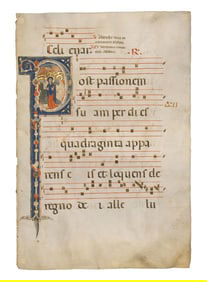 celi enar
R.
Post passionem
suam per di es
quadraginta appa
rens e is et loquens de
regno de i alle lu